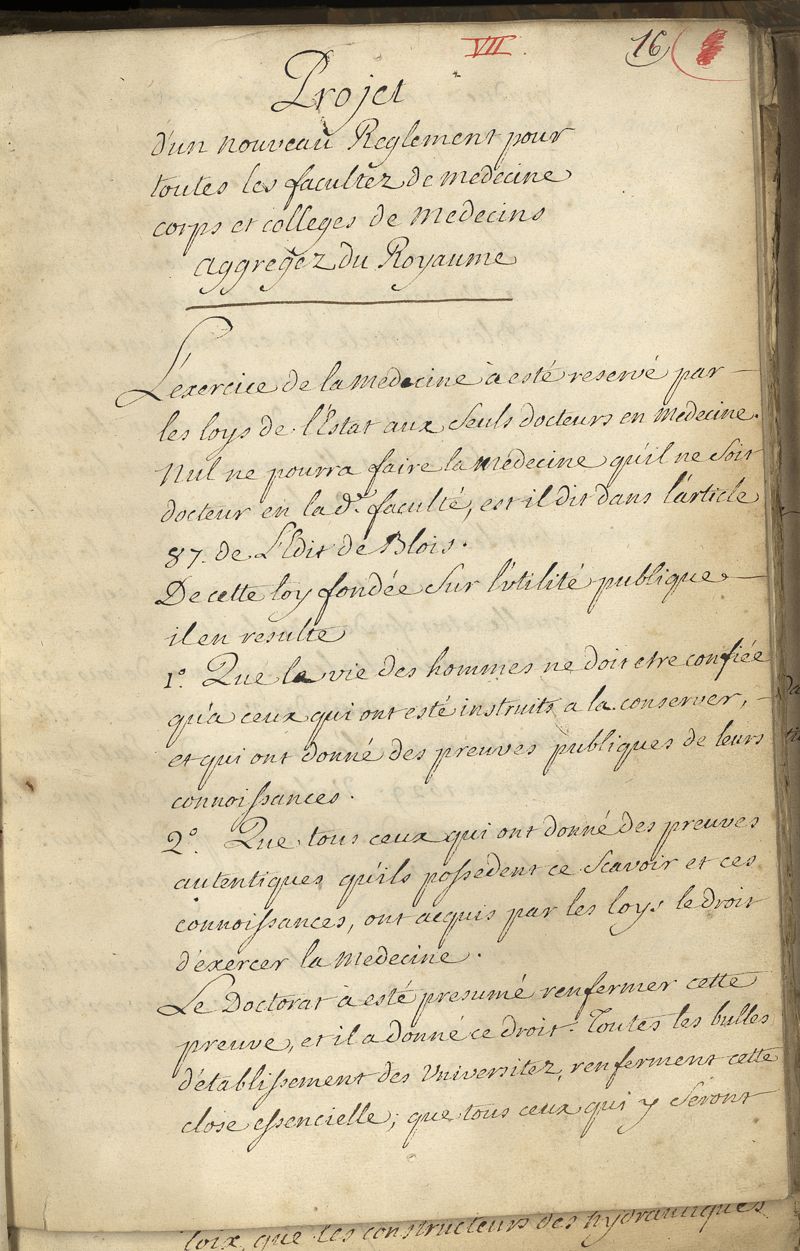 VII
16
Projet
d'un nouveau Reglement pour
toutes les facultez de medecine
corps et colleges de Medecins
aggregez du Royaume
L'exercice de la medecine à esté reservé par
les loys de l'Estat aux seuls docteurs en medecine.
Nul ne pourra faire la medecine qu'il ne soit
docteur en la de. faculté, est il dit dans l'article
87. de L'Edit de Blois.
De cette loy fondée sur l'utilité publique
il en resulte
1°. Que la vie des hommes ne doit etre confiée
qu'a ceux qui ont esté instruits a la conserver,
et qui ont donné des preuves publiques de leurs
connoissances.
2°. Que tous ceux qui ont donné des preuves
autentiques qu'ils possedent ce scavoir et ces
connoissances, ont acquis par les loys le droit
d'éxercer la medecine.
Le Doctorat à esté presumé renfermer cette
preuve, et il a donné ce droit. Toutes les bulles
d'établissement des Universitez, renferment cette
close essencielle, que tous ceux qui y seront
loix que les constructeurs des hydrauliques